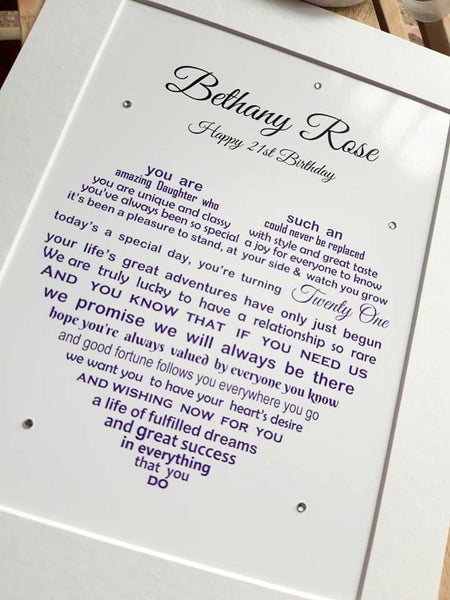 Bethany Rose
Happy 21st Birthday
you are such an
amazing Daughter who could never be replaced
you are unique and classy with style and great taste
you've always been so special a joy for everyone to know
it's been a pleasure to stand, at your side & watch you grow
today's a special day, you're turning Twenty One
your life's great adventures have only just begun
We are truly lucky to have a relationship so rare
AND YOU KNOW THAT IF YOU NEED US
we promise we will always be there
hope you're always valued by everyone you know
and good fortune follows you everywhere you go
we want you to have your heart's desire
AND WISHING NOW FOR YOU
a life of fulfilled dreams
and great success
in everything
that you
DO